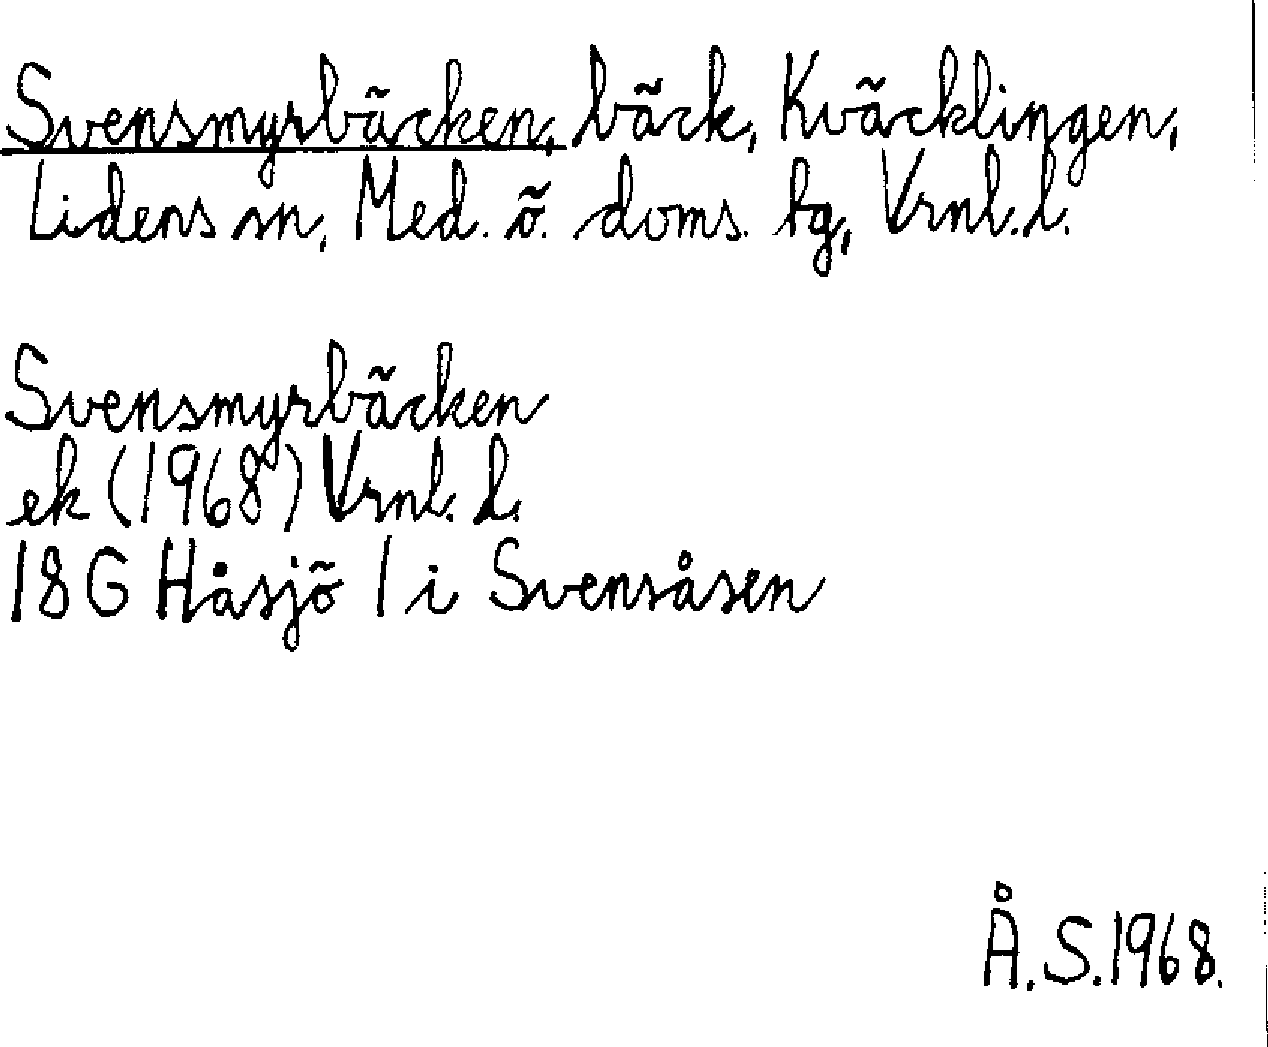 Svensmyrbäcken, bäck, Kväcklingen,
Lidens sn, Med. ö. doms. tg, Vrnl.l.
Svensmyrbäcken
ek (1968) Vrnl. l.
18G Håsjö 1 i Svensåsen
Å.S.1968.